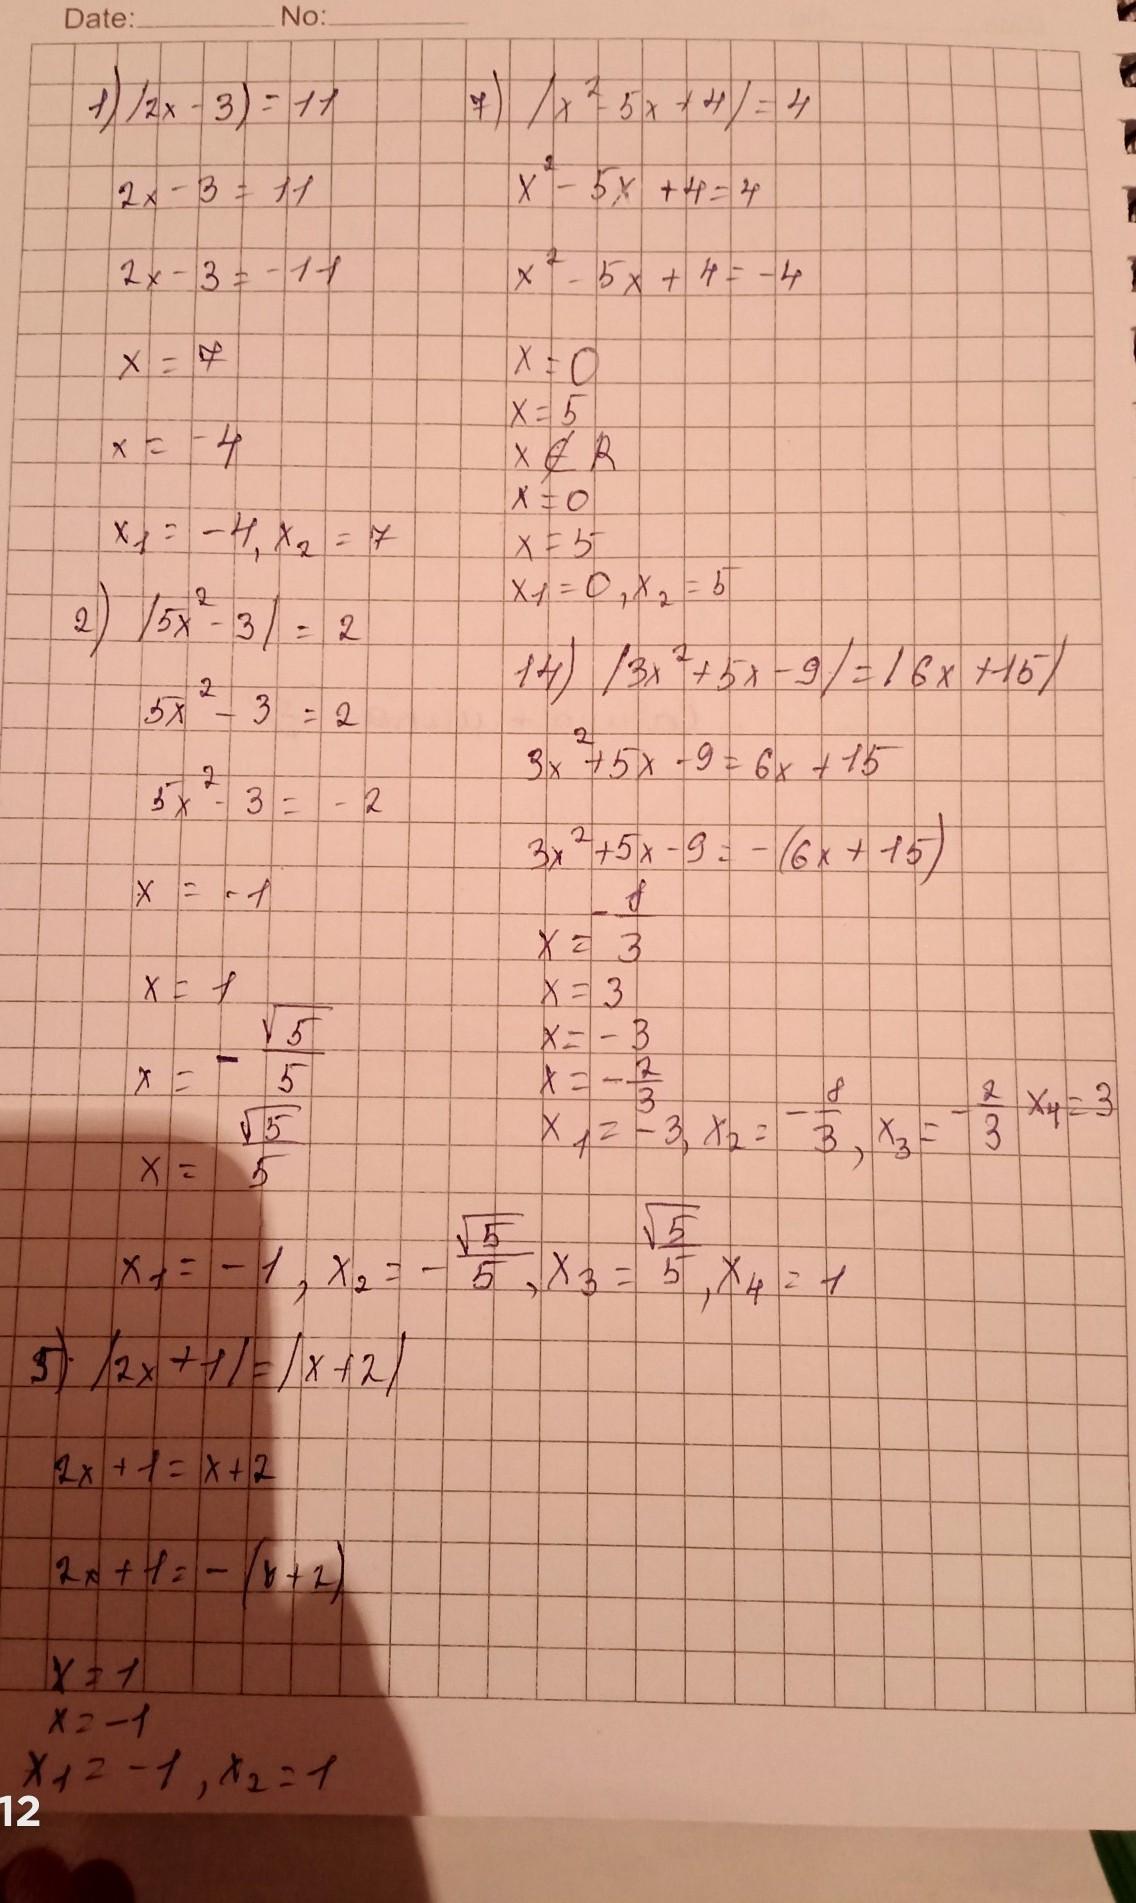 Date: No:
1) |2x - 3) = 11
2x - 3 = 11
2x - 3 = -11
x = 7
x = -4
x₁ = -4, x₂ = 7
2) |5x² - 3| = 2
5x² - 3 = 2
5x² - 3 = -2
x = -1
x = 1
x = -√5/5
x = √5/5
x₁ = -1, x₂ = -√5/5, x₃ = √5/5, x₄ = 1
5) |2x + 1| = |x + 2|
2x + 1 = x + 2
2x + 1 = -(x + 2)
x = 1
x = -1
x₁ = -1, x₂ = 1
7) |x² - 5x + 4| = 4
x² - 5x + 4 = 4
x² - 5x + 4 = -4
x = 0
x = 5
x ∉ R
x = 0
x = 5
x₁ = 0, x₂ = 5
14) |3x² + 5x - 9| = |6x + 15|
3x² + 5x - 9 = 6x + 15
3x² + 5x - 9 = -(6x + 15)
x = -8/3
x = 3
x = -3
x = -2/3
x₁ = -3, x₂ = -8/3, x₃ = -2/3 x₄ = 3
12